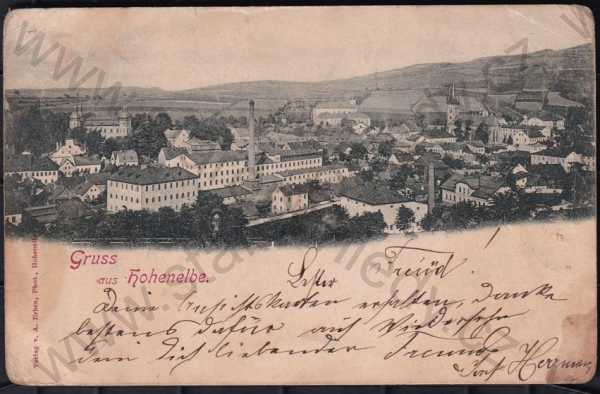 Gruss
aus Hohenelbe.
Lester Freud!
Deine Ansichtskarten erhalten, danke
bestens dafür auf Wiedersehn
dein Dich liebender Freund
Josef Herrmann
Verlag v. A. Erben, Phot., Hohenelbe